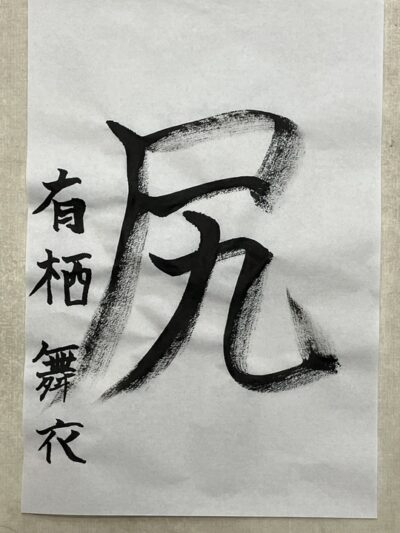 尻
有栖舞衣